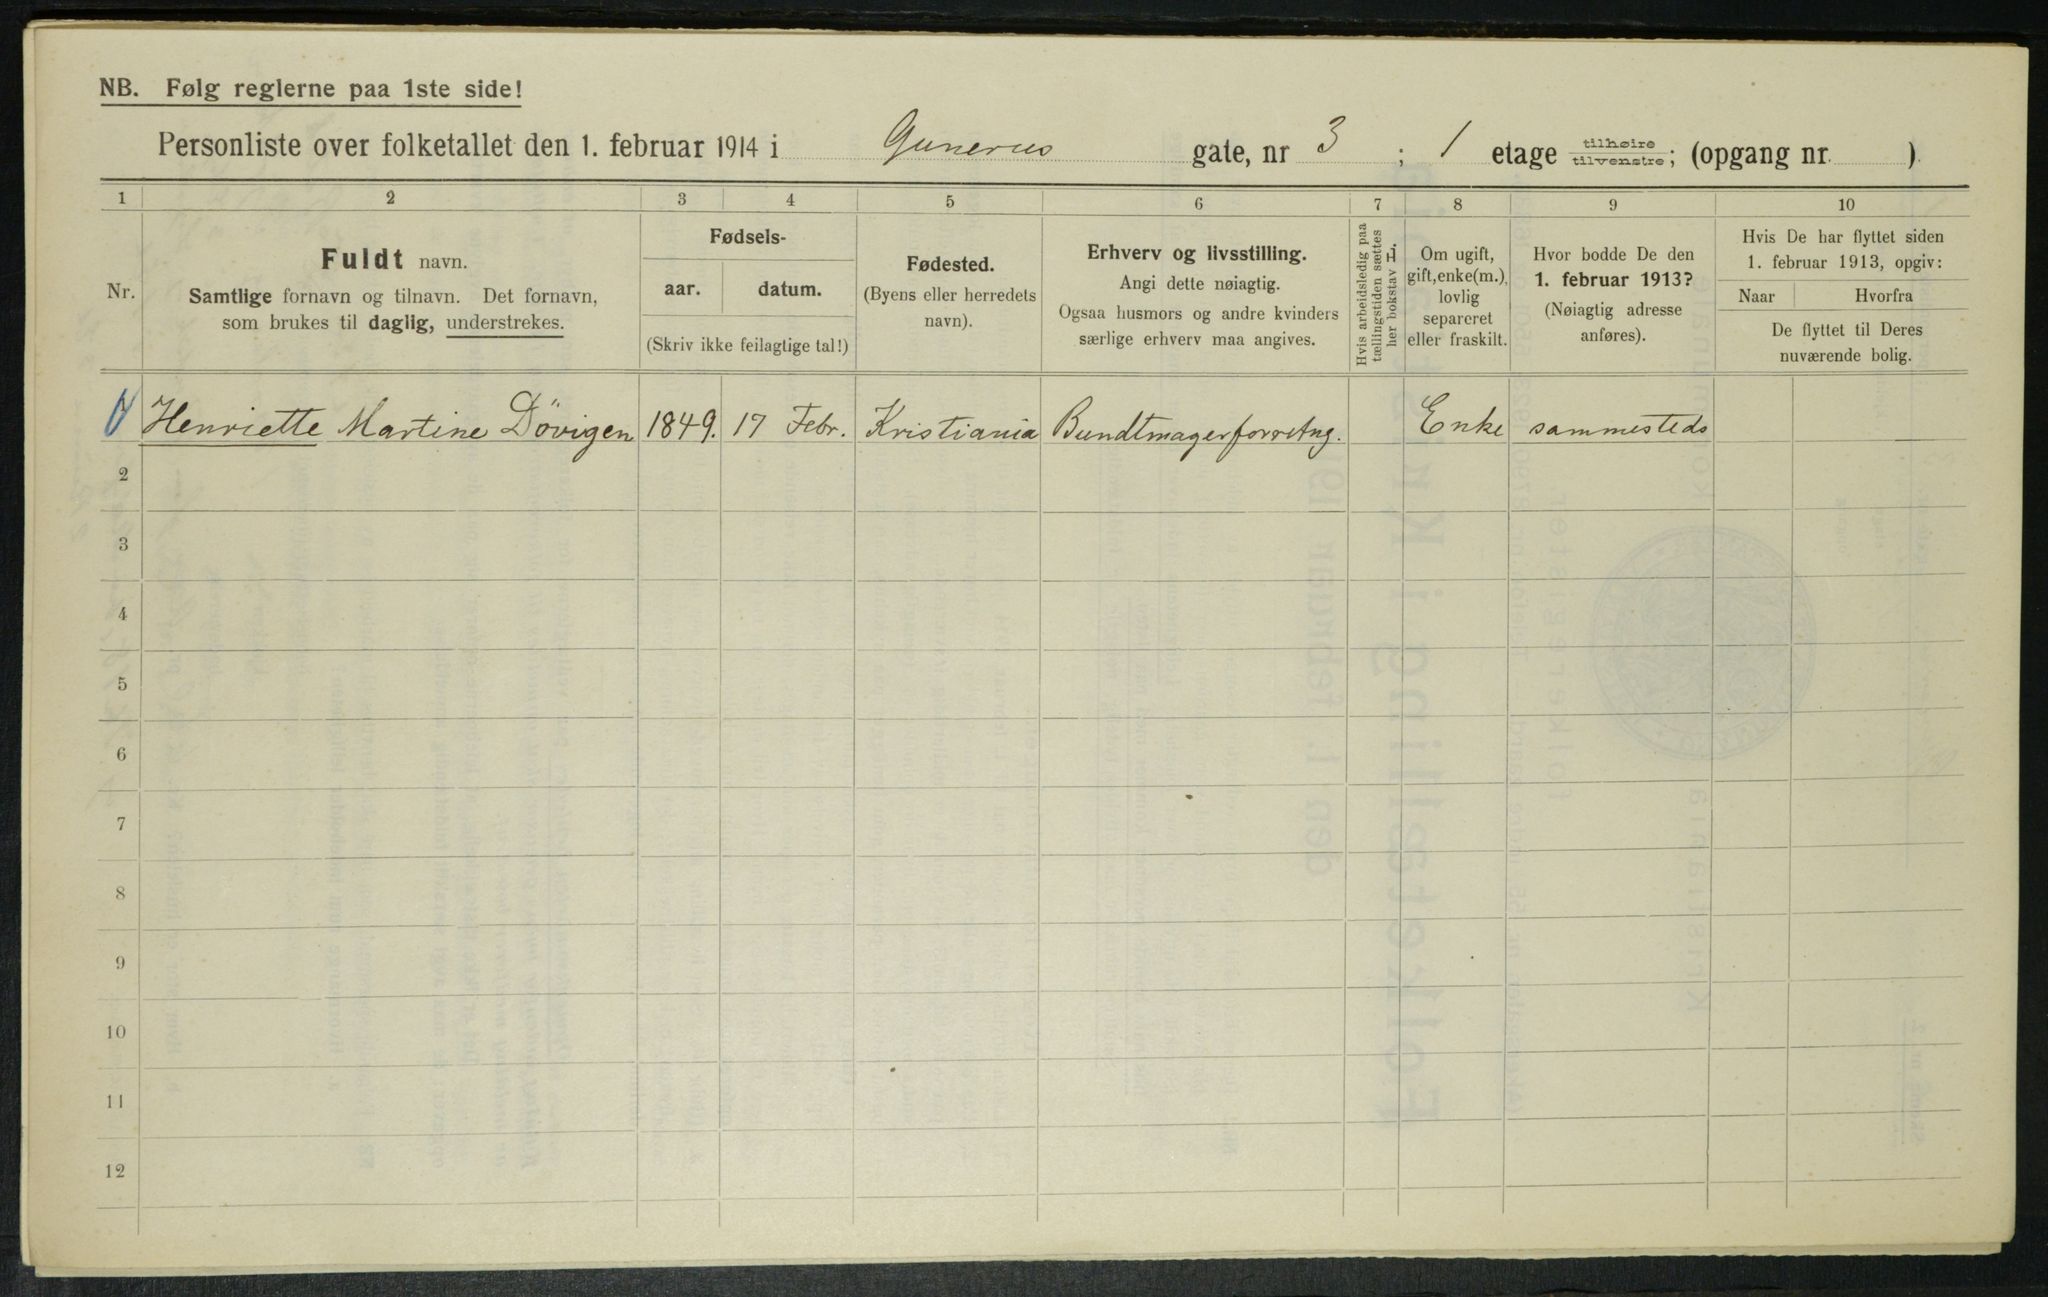 NB. Følg reglerne paa 1ste side!
Personliste over folketallet den 1. februar 1914 i Gunerus gate, nr 3 ; 1 etage tilhøire / tilvenstre; (opgang nr. )
1 2 3 4 5 6 7 8 9 10
Nr.
Fuldt navn.
Samtlige fornavn og tilnavn. Det fornavn,
som brukes til daglig, understrekes.
Fødsels-
aar. datum.
(Skriv ikke feilagtige tal!)
Fødested.
(Byens eller herredets
navn).
Erhverv og livsstilling.
Angi dette nøiagtig.
Ogsaa husmors og andre kvinders
særlige erhverv maa angives.
Hvis arbeidsledig paa
tællingstiden sættes
her bokstav L.
Om ugift,
gift, enke(m.),
lovlig
separeret
eller fraskilt.
Hvor bodde De den
1. februar 1913?
(Nøiagtig adresse
anføres).
Hvis De har flyttet siden
1. februar 1913, opgiv:
Naar Hvorfra
De flyttet til Deres
nuværende bolig.
Henriette Martine Dövigen 1849. 17 Febr. Kristiania Bundtmagerforretng. Enke sammesteds
2
3
4
5
6
7
8
9
10
11
12